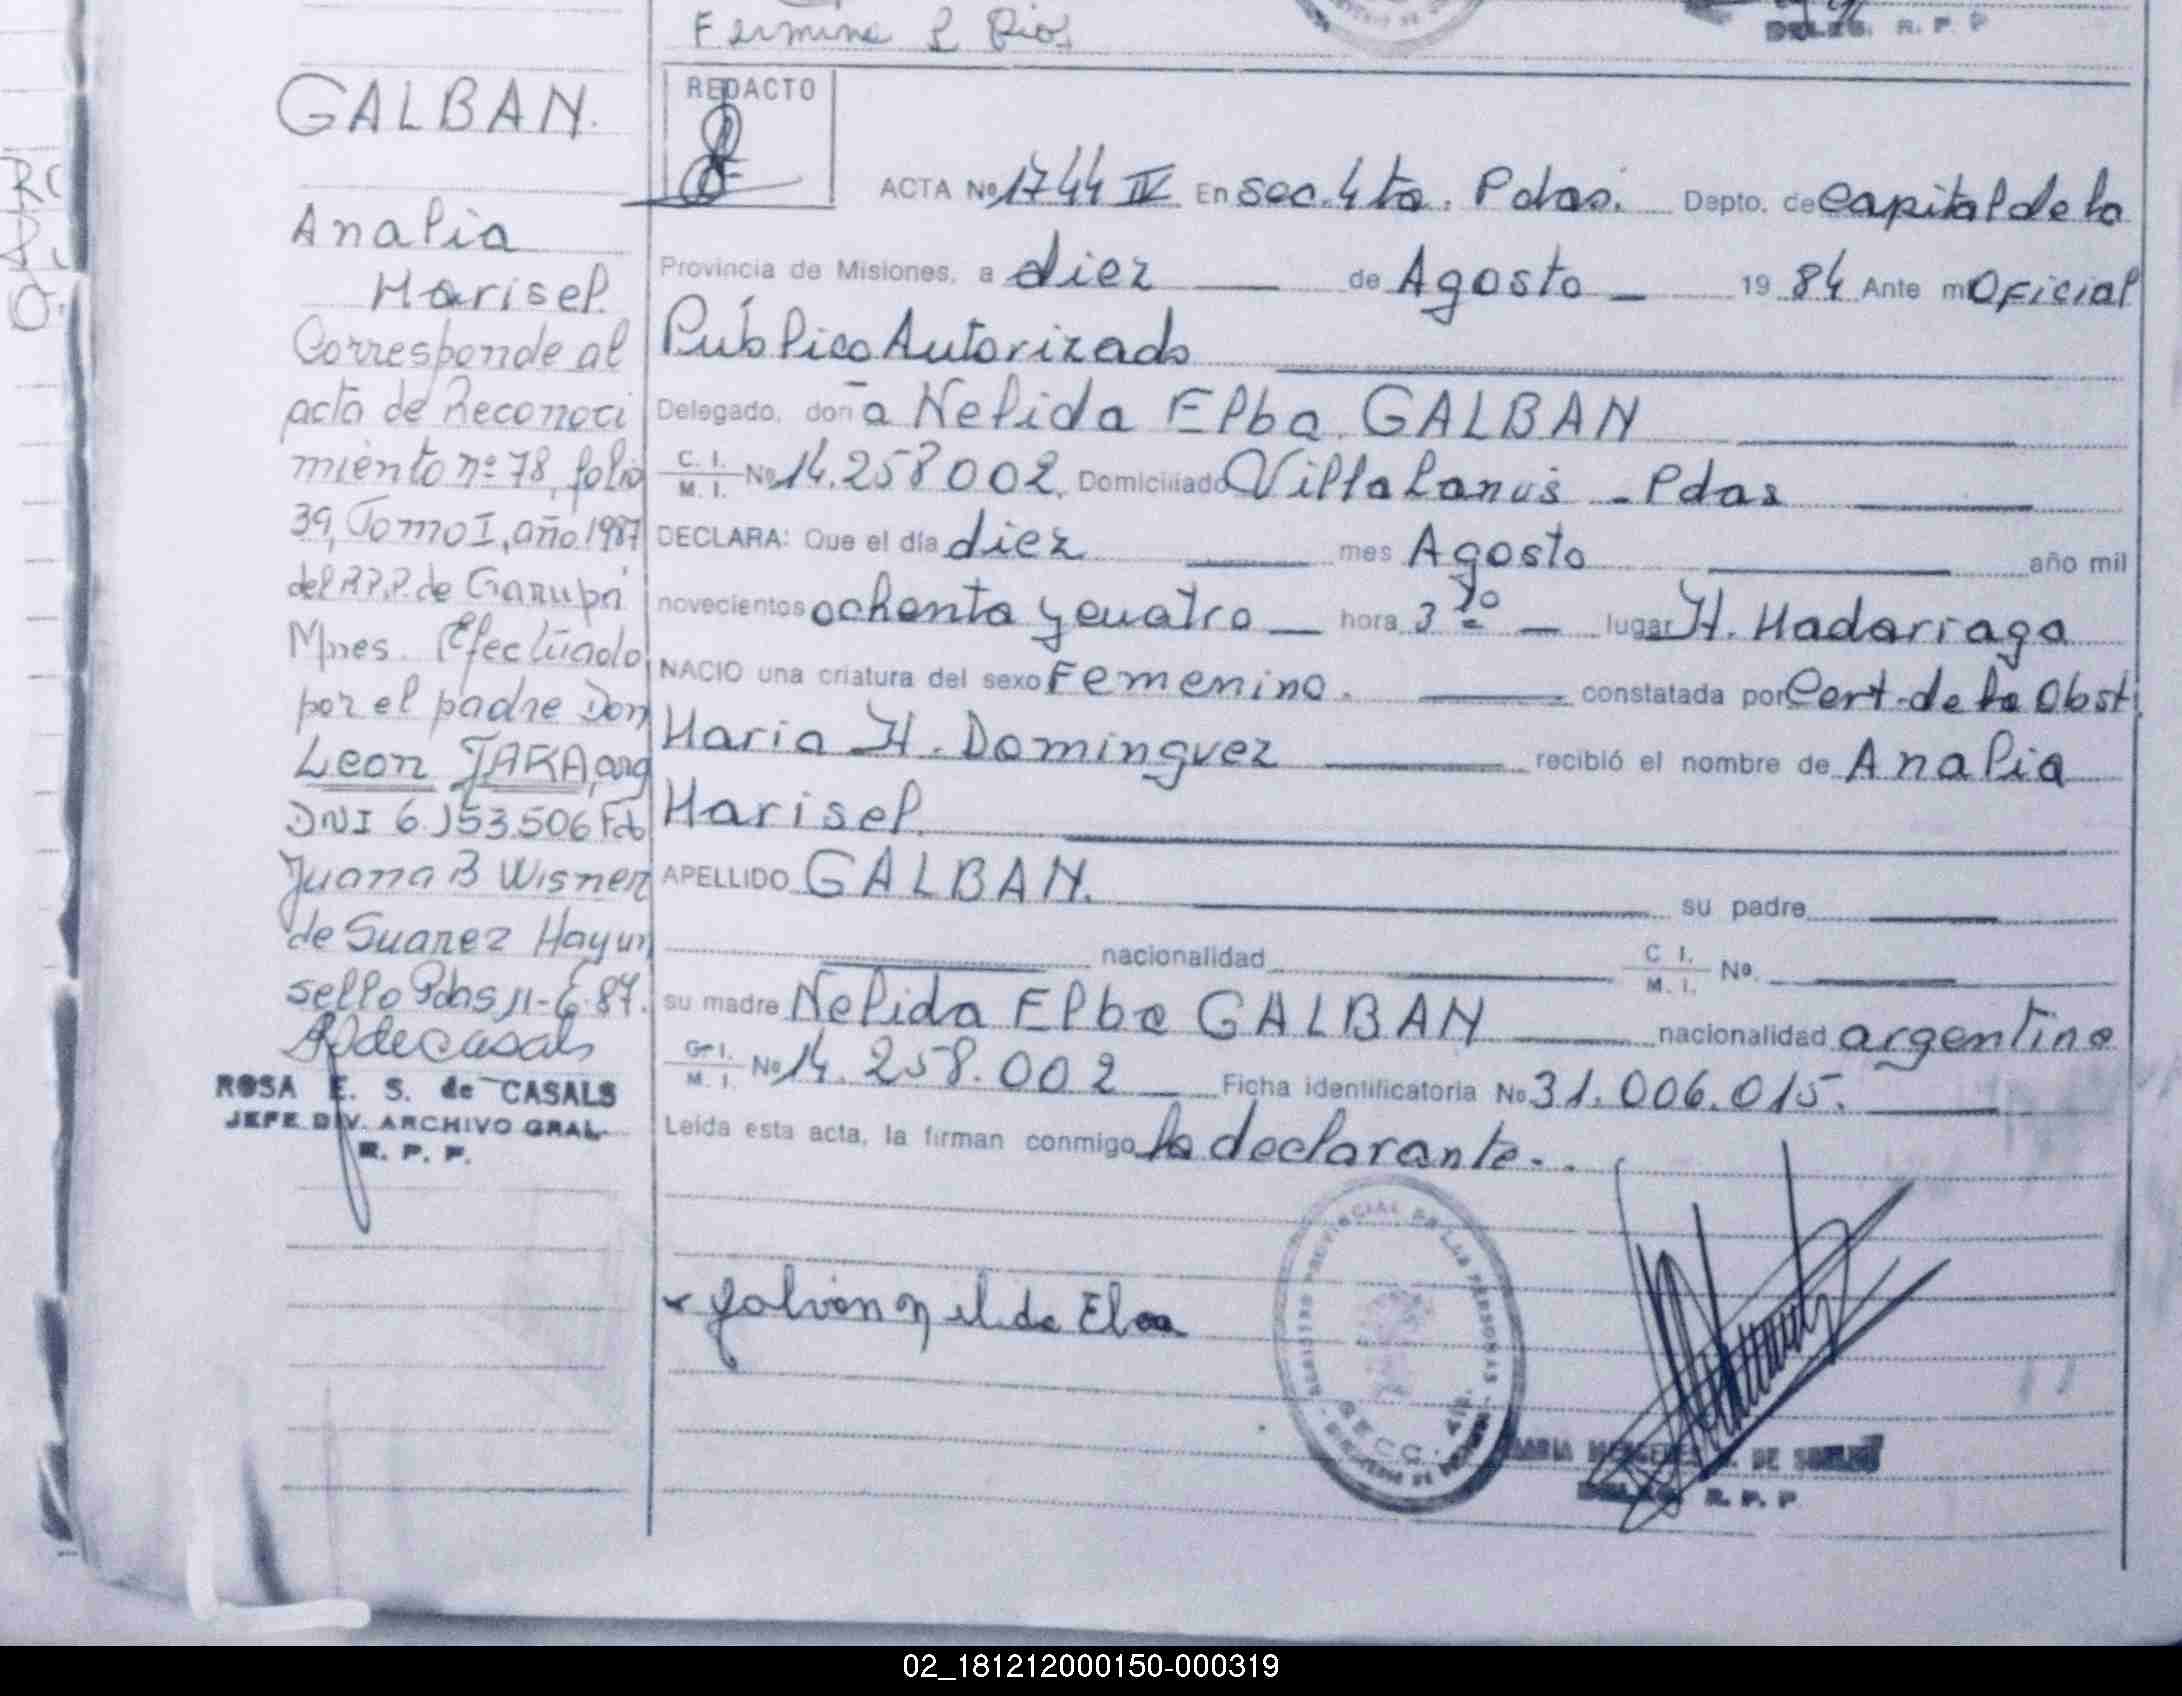 Fermina R Rios
DELEG. R. P. P
GALBAN.
Analia
Marisel.
Corresponde al
acta de Reconoci
miento nº 78, folio
39, Tomo I, año 1987
del R.P.P. de Garupá
Mnes. Efectuado
por el padre Don
Leon JARA, arg
DNI 6.153.506 Fdo
Juana B Wisner
de Suarez Hay un
sello Pdas 11-6-87.
ROSA E. S. de CASALS
JEFE DIV. ARCHIVO GRAL.
R. P. P.
REDACTO
ACTA Nº 1744 IV En sec. 4ta. Pdas. Depto. de Capital de la
Provincia de Misiones, a diez de Agosto 1984 Ante mí Oficial
Público Autorizado
Delegado, doña Nelida Elba GALBAN
C. I. M. I. Nº 14.258002. Domiciliado Villa Lanus - Pdas
DECLARA: Que el día diez mes Agosto año mil
novecientos ochenta y cuatro hora 3 10 lugar H. Madariaga
NACIO una criatura del sexo Femenino. constatada por Cert. de la Obst.
Maria H. Dominguez recibió el nombre de Analia
Marisel.
APELLIDO GALBAN. su padre
nacionalidad C I. M. I. Nº.
su madre Nelida Elba GALBAN nacionalidad argentina
C. I. M. I. Nº 14.258.002 Ficha identificatoria Nº 31.006.015.
Leída esta acta, la firman conmigo la declarante..
Galvan Nelida Elba
REGISTRO PROVINCIAL DE LAS PERSONAS
SECC. 4ta.
PROVINCIA DE MISIONES
MARIA MERCEDES DE
R. P. P
02_181212000150-000319